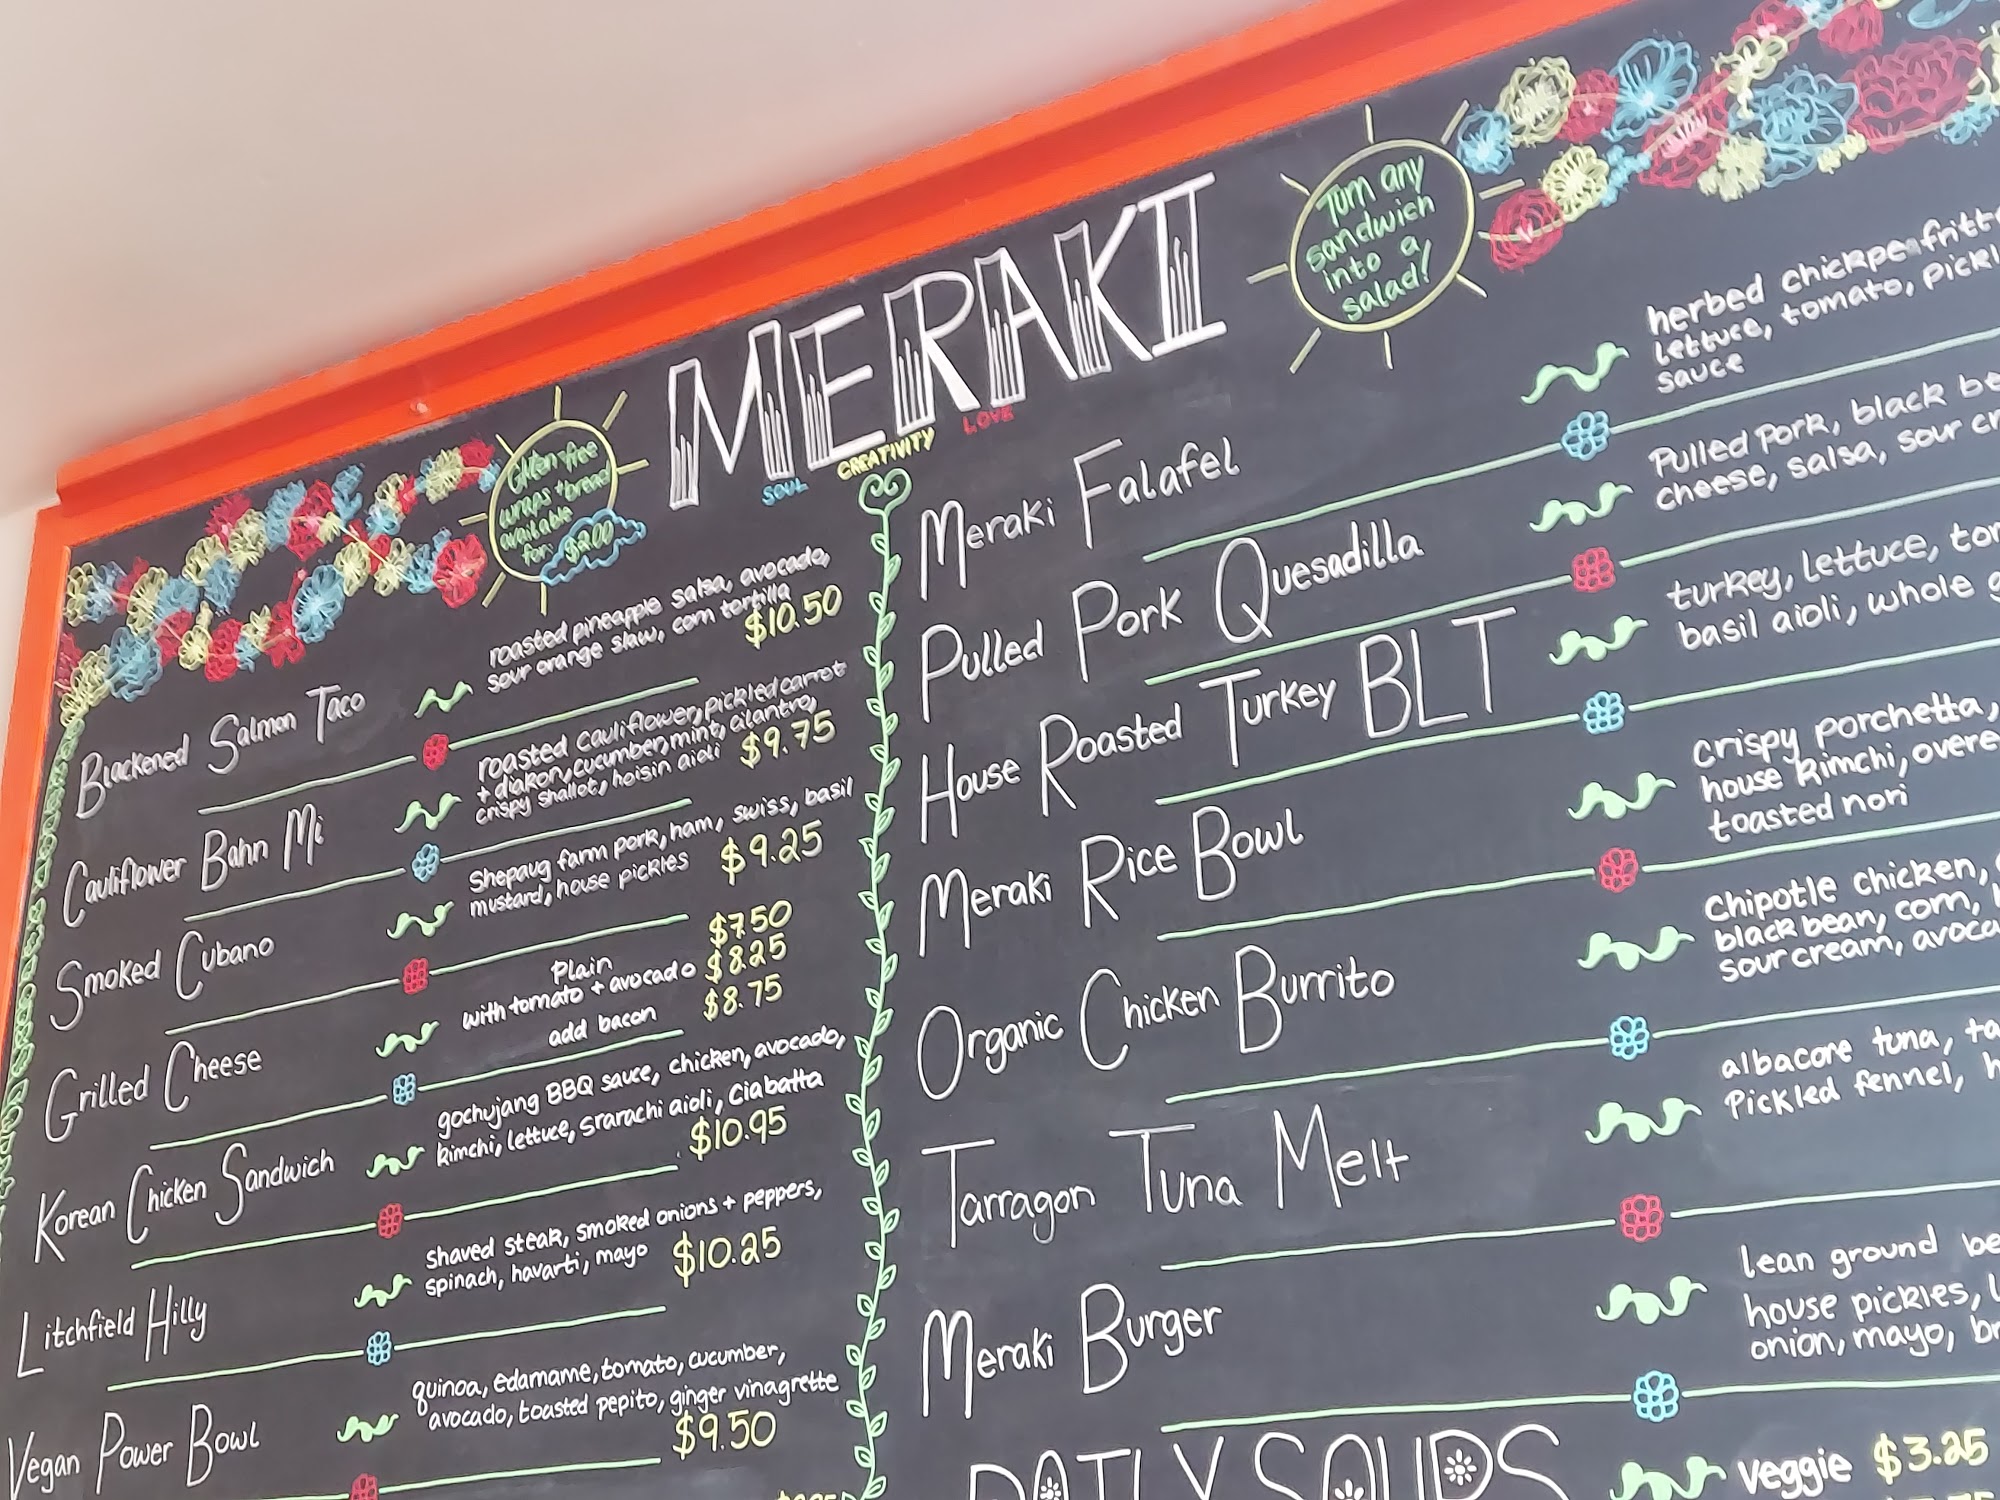 MERAKI
SOUL CREATIVITY LOVE
Gluten-free
wraps + bread
available
for $2.00
Turn any
sandwich
into a
salad!
Blackened Salmon Taco
roasted pineapple salsa, avocado,
sour orange slaw, corn tortilla
$10.50
Cauliflower Bahn Mi
roasted cauliflower, pickled carrot
+ diakon, cucumber, mint, cilantro,
crispy shallot, hoisin aioli $9.75
Smoked Cubano
Shepaug farm pork, ham, swiss, basil
mustard, house pickles $9.25
Grilled Cheese
Plain $7.50
with tomato + avocado $8.25
add bacon $8.75
Korean Chicken Sandwich
gochujang BBQ sauce, chicken, avocado,
kimchi, lettuce, srarachi aioli, ciabatta
$10.95
Litchfield Hilly
shaved steak, smoked onions + peppers,
spinach, havarti, mayo $10.25
Vegan Power Bowl
quinoa, edamame, tomato, cucumber,
avocado, toasted pepito, ginger vinagrette
$9.50
Meraki Falafel
herbed chickpea fritt
lettuce, tomato, pickl
sauce
Pulled Pork Quesadilla
Pulled Pork, black be
cheese, salsa, sour cr
House Roasted Turkey BLT
turkey, lettuce, tom
basil aioli, whole g
Meraki Rice Bowl
crispy porchetta,
house kimchi, overe
toasted nori
Organic Chicken Burrito
Chipotle chicken,
black bean, corn,
sour cream, avoca
Tarragon Tuna Melt
albacore tuna, ta
Pickled fennel, h
Meraki Burger
lean ground be
house pickles, l
onion, mayo, br
DAILY SOUPS
veggie $3.25